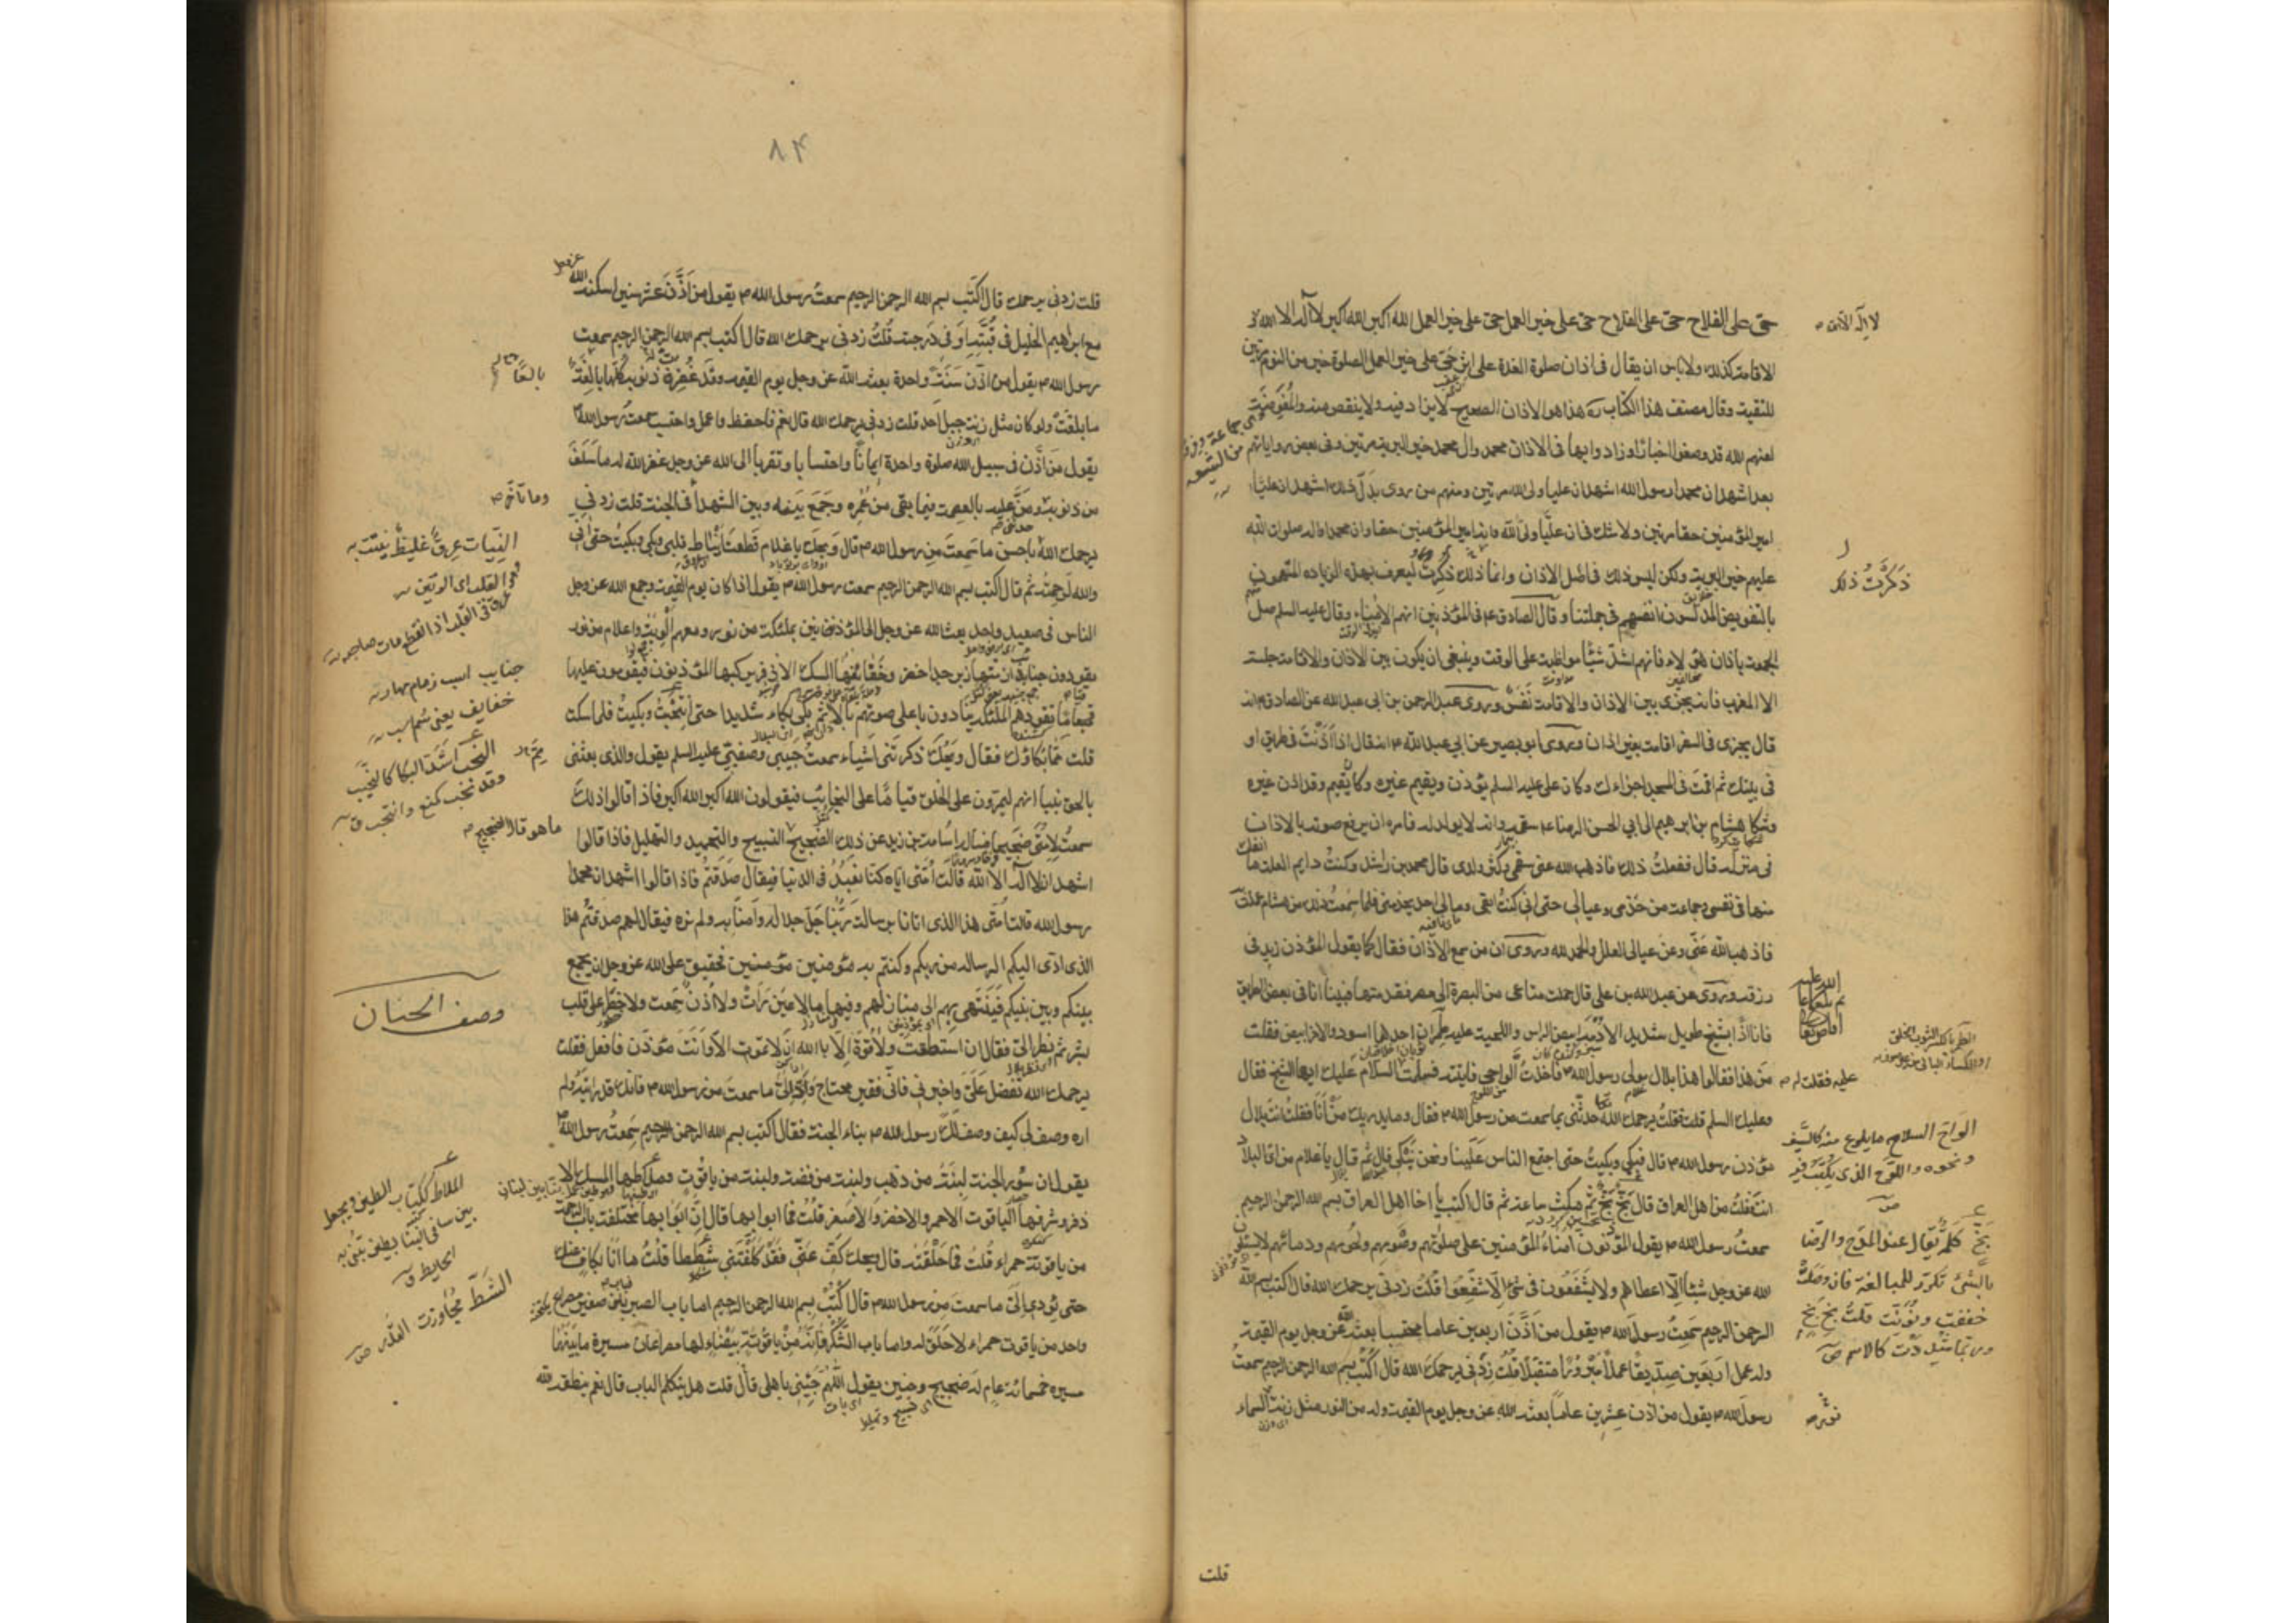 حی علی الفلاح حی علی الفلاح حی علی خیر العمل حی علی خیر العمل الله اکبر الله اکبر لا اله الا الله و
لا اله الا الله
الاقامة کذلک ولا باس ان یقال فی اذان صلوة الغداة علی اثر حی علی خیر العمل الصلوة خیر من النوم مرتین
للتقیة وقال مصنف هذا الکتاب ره هذا هو الاذان الصحیح لا یزاد فیه ولا ینقص منه والمفوضة
لعنهم الله قد وضعوا اخبارا وزادوا بها فی الاذان محمد وال محمد خیر البریة مرتین وفی بعض روایاتهم
بعد اشهد ان محمدا رسول الله اشهد ان علیا ولی الله مرتین ومنهم من روی بدل ذلک اشهد ان علیا
امیر المؤمنین حقا مرتین ولا شک فی ان علیا ولی الله وانه امیر المؤمنین حقا وان محمدا واله صلوات الله
علیهم خیر البریة ولکن لیس ذلک فی اصل الاذان وانما ذکرت لیعرف بهذه الزیادة المتهمون
ذکرت ذلک
بالتفویض المدلسون انفسهم فی جملتنا وقال الصادق ع فی المؤذنین انهم الامناء وقال علیه السلم صل
الجمعة باذان هؤلاء فانهم اشد شیئا مواظبة علی الوقت وینبغی ان یکون بین الاذان والاقامة جلسة
الا المغرب فانه یجزی بین الاذان والاقامة نفس وروی عبد الرحمن بن ابی عبد الله عن الصادق م انه
قال یجزی فی السفر اقامة بغیر اذان وروی ابو بصیر عن ابی عبد الله م انه قال اذا اذنت فی طریق او
فی بیتک ثم اقمت فی المسجد اجزاءک وکان علی علیه السلم یؤذن ویقیم غیره وکان یقیم وقد اذن غیره
وشکا هشام بن ابرهیم الی ابی الحسن الرضا ع سقمه وانه لا یولد له فامره ان یرفع صوته بالاذان
فی منزله قال ففعلت ذلک فاذهب الله عنی سقمی وکثر ولدی قال محمد بن راشد وکنت دایم العلة ما انفک
منها فی نفسی وجماعة من خدمی وعیالی حتی انی کنت ابقی ومالی احد یخدمنی فلما سمعت ذلک من هشام عملت
فاذهب الله عنی وعن عیالی العلل والحمد لله وروی ان من سمع الاذان فقال کما یقول المؤذن زید فی
رزقه وروی عن عبد الله بن علی قال حملت متاعی من البصرة الی مصر فقدمتها فبینا انا فی بعض الطریق
فاذا انا بشیخ طویل شدید الادمة ابیض الراس واللحیة علیه طمران احدهما اسود والاخر ابیض فقلت
من هذا فقالوا هذا بلال مولی رسول الله م فاخذت الواحی فاتیته فسلمت السلام علیک ایها الشیخ فقال
علیه فقلت له
وعلیک السلم قلت یرحمک الله حدثنی بما سمعت من رسول الله م فقال وما یدریک من انا فقلت انت بلال
مؤذن رسول الله م قال فبکی وبکیت حتی اجتمع الناس علینا ونحن نبکی قال ثم قال یا غلام من ای البلاد
الواح السلاح ما یلوح منه کالسیف
ونحوه واللوح الذی یکتب فیه
انت قلت من اهل العراق قال بخ بخ ثم مکث ساعة ثم قال اکتب یا اخا اهل العراق بسم الله الرحمن الرحیم
سمعت رسول الله م یقول المؤذنون امناء المؤمنین علی صلوتهم وصومهم ولحومهم ودمائهم لا یسئلون
بخ کلمة یقال عند المدح والرضا
بالشیء تکرر للمبالغة فان وصلت
خففت ونونت قلت بخ بخ
الله عز وجل شیئا الا اعطاهم ولا یشفعون فی شیء الا شفعوا قلت زدنی یرحمک الله قال اکتب بسم الله
الرحمن الرحیم سمعت رسول الله م یقول من اذن اربعین عاما محتسبا بعثه الله عز وجل یوم القیمة
وله عمل اربعین صدیقا عملا مبرورا متقبلا قلت زدنی یرحمک الله قال اکتب بسم الله الرحمن الرحیم سمعت
رسول الله م یقول من اذن عشرین عاما بعثه الله عز وجل یوم القیمة وله من النور مثل زنة السماء
قلت
۸۴
قلت زدنی یرحمک قال اکتب بسم الله الرحمن الرحیم سمعت رسول الله م یقول من اذن عشر سنین اسکنه الله عز وجل
مع ابراهیم الخلیل فی قبته او فی درجته قلت زدنی یرحمک الله قال اکتب بسم الله الرحمن الرحیم سمعت
رسول الله م یقول من اذن سنة واحدة بعثه الله عز وجل یوم القیمة وقد غفرت ذنوبه کلها بالغة
ما بلغت ولو کان مثل زنة جبل احد قلت زدنی یرحمک الله قال نعم فاحفظ واعمل واحتسب سمعت رسول الله م
یقول من اذن فی سبیل الله صلوة واحدة ایمانا واحتسابا وتقربا الی الله عز وجل غفر الله له ما سلف
من ذنوبه ومن علیه بالعصمة فیما بقی من عمره وجمع بینه وبین الشهداء فی الجنة قلت زدنی
وما تاخر
یرحمک الله باحسن ما سمعت من رسول الله م قال ویحک یا غلام قطعت انیاط قلبی وبکی وبکیت حتی انی
والله لرحمته ثم قال اکتب بسم الله الرحمن الرحیم سمعت رسول الله م یقول اذا کان یوم القیمة وجمع الله عز وجل
الناس فی صعید واحد بعث الله عز وجل الی المؤذنین بملئکة من نور ومعهم الویة واعلام من نور
یقودون جنایب ازمتها زبرجد اخضر وخفائفها المسک الاذفر یرکبها المؤذنون فیقومون علیها
قیاما تقودهم الملئکة ینادون باعلی صوتهم بالاذان ثم بکی بکاء شدیدا حتی انتحب وبکیت فلما سکت
قلت مما بکاؤک فقال ویحک ذکرتنی اشیاء سمعت حبیبی وصفیی علیه السلم یقول والذی بعثنی
النحب اشد البکا کالنحیب
وقد نحب کمنع وانتحب ق
بالحق نبیا انهم لیمرون علی الخلق قیاما علی النجایب فیقولون الله اکبر الله اکبر فاذا قالوا ذلک
سمعت لامتی ضجیجا فسال اسامة بن زید عن ذلک الضجیج التسبیح والتحمید والتهلیل فاذا قالوا
ما هو قال الضجیج
اشهد ان لا اله الا الله قالت امتی ایاه کنا نعبد فی الدنیا فیقال صدقتم فاذا قالوا اشهد ان محمدا
رسول الله قالت امتی هذا الذی اتانا برسالة ربنا جل جلاله وامنا به ولم نره فیقال لهم صدقتم هذا
الذی ادی الیکم الرسالة من ربکم وکنتم به مؤمنین فحقیق علی الله عز وجل ان یجمع
بینکم وبین نبیکم فینتهی بهم الی منازلهم وفیها ما لا عین رات ولا اذن سمعت ولا خطر علی قلب
وصف الجنان
بشر ثم نظر الی فقال ان استطعت ولا قوة الا بالله ان لا تموت الا وانت مؤذن فافعل فقلت
یرحمک الله تفضل علی واخبرنی فانی فقیر محتاج واد الی ما سمعت من رسول الله م فانک قد رایته ولم
اره وصف لی کیف وصف لک رسول الله م بناء الجنة فقال اکتب بسم الله الرحمن الرحیم سمعت رسول الله م
یقول ان سور الجنة لبنة من ذهب ولبنة من فضة ولبنة من یاقوت وملاطها المسک الا
ذفر وشرفها الیاقوت الاحمر والاخضر والاصفر قلت فما ابوابها قال ان ابوابها مختلفة باب الرحمة
من یاقوتة حمراء قلت فما حلقته قال ویحک کف عنی فقد کلفتنی شططا قلت ما انا بکاف عنک
حتی تؤدی الی ما سمعت من رسول الله م قال اکتب بسم الله الرحمن الرحیم اما باب الصبر فباب صغیر مصراع
واحد من یاقوت حمراء لا حلق له واما باب الشکر فانه من یاقوتة بیضاء ولها مصراعان مسیرة ما بینهما
الشطط مجاوزة القدر ص
مسیرة خمسمائة عام له ضجیج وحنین یقول اللهم جئنی باهلی قال قلت هل یتکلم الباب قال نعم ینطقه الله